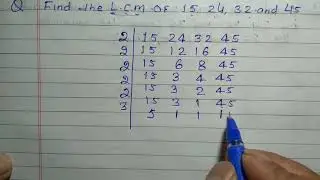 Q Find the L.C.M OF 15, 24, 32 and 45
2 15 24 32 45
2 15 12 16 45
2 15 6 8 45
2 15 3 4 45
2 15 3 2 45
3 15 3 1 45
5 1 1 1